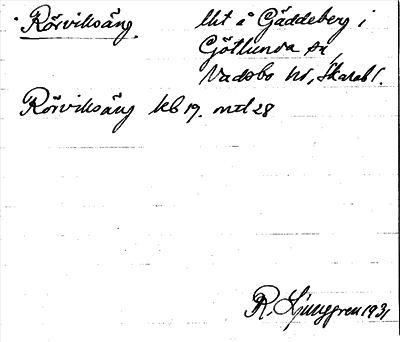 Rörviksäng. Ukt å Gäddeberg i
Götlunda sn,
Vadsbo hd, Skarab l.
Rörviksäng kb 19. mtl 28
R. Ljunggren 1931